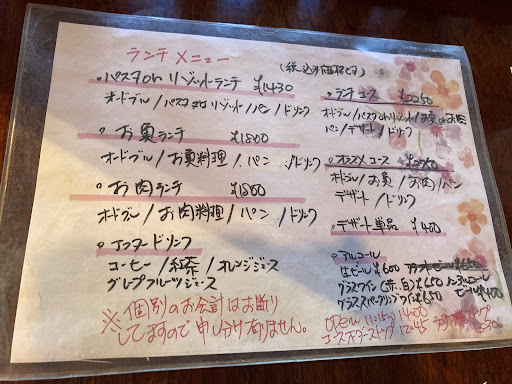 ランチメニュー
(税込み価格です)
◦パスタorリゾットランチ ¥1430
オードブル/パスタorリゾット/パン/ドリンク
◦お魚ランチ ¥1800
オードブル/お魚料理/パン/ドリンク
◦お肉ランチ ¥1800
オードブル/お肉料理/パン/ドリンク
◦アフタードリンク
コーヒー/紅茶/オレンジジュース
グレープフルーツジュース
※個別のお会計はお断り
してますので申し分けありません。
◦ランチコース
オードブル/パスタorリゾット/お魚orお肉
パン/デザート/ドリンク
◦オススメコース
オードブル/お魚/お肉/パン
デザート/ドリンク
◦デザート単品 ¥400
◦アルコール
生ビール¥600
グラスワイン(赤、白)¥650 ノンアルコール
グラススパークリングワイン¥650 ビール¥400
OPEN 11:15 14:00
コースオーダーストップ 12:45